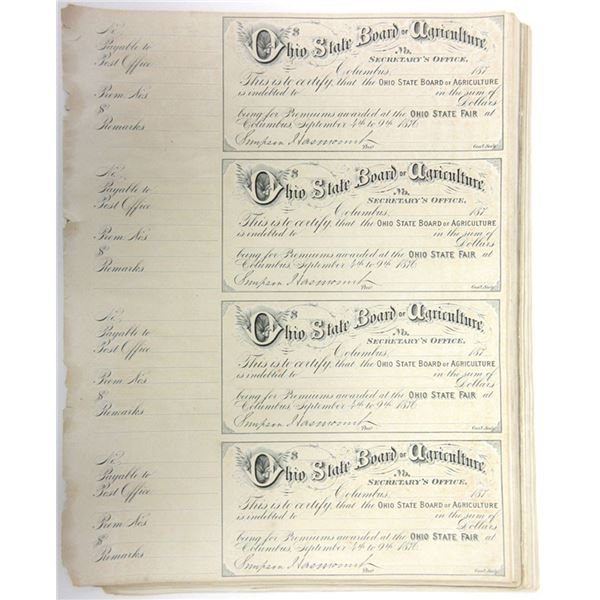 No.
Payable to
Post Office
Prem. Nos
$
Remarks
$
Ohio State Board of Agriculture,
No.
SECRETARY'S OFFICE,
Columbus, 187
This is to certify, that the OHIO STATE BOARD OF AGRICULTURE
is indebted to in the sum of
Dollars
being for Premiums awarded at the OHIO STATE FAIR at
Columbus, September 4th to 9th 1876.
Simpson
No.
Payable to
Post Office
Prem. Nos
$
Remarks
$
Ohio State Board of Agriculture,
No.
SECRETARY'S OFFICE,
Columbus, 187
This is to certify, that the OHIO STATE BOARD OF AGRICULTURE
is indebted to in the sum of
Dollars
being for Premiums awarded at the OHIO STATE FAIR at
Columbus, September 4th to 9th 1876.
Simpson
No.
Payable to
Post Office
Prem. Nos
$
Remarks
$
Ohio State Board of Agriculture,
No.
SECRETARY'S OFFICE,
Columbus, 187
This is to certify, that the OHIO STATE BOARD OF AGRICULTURE
is indebted to in the sum of
Dollars
being for Premiums awarded at the OHIO STATE FAIR at
Columbus, September 4th to 9th 1876.
Simpson
No.
Payable to
Post Office
Prem. Nos
$
Remarks
$
Ohio State Board of Agriculture,
No.
SECRETARY'S OFFICE,
Columbus, 187
This is to certify, that the OHIO STATE BOARD OF AGRICULTURE
is indebted to in the sum of
Dollars
being for Premiums awarded at the OHIO STATE FAIR at
Columbus, September 4th to 9th 1876.
Simpson